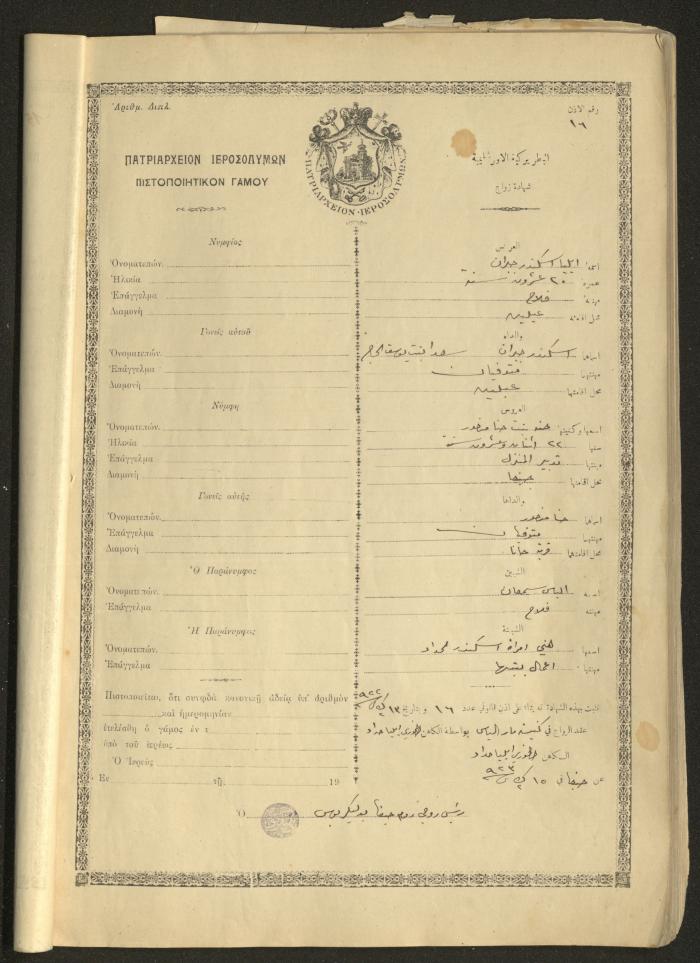 Ἀριθμ. Διπλ.
رقم الاذن
١٦
ΠΑΤΡΙΑΡΧΕΙΟΝ ΙΕΡΟΣΟΛΥΜΩΝ
ΠΙΣΤΟΠΟΙΗΤΙΚΟΝ ΓΑΜΟΥ
ΠΑΤΡΙΑΡΧΕΙΟΝ·ΙΕΡΟΣΟΛΥΜΩΝ
البطريركية الاورشليمية
شهادة زواج
Νυμφίος
Ὀνοματεπών.
Ἡλικία
Ἐπάγγελμα
Διαμονή
Γονεῖς αὐτοῦ
Ὀνοματεπών.
Ἐπάγγελμα
Διαμονή
Νύμφη
Ὀνοματεπών.
Ἡλικία
Ἐπάγγελμα
Διαμονή
Γονεῖς αὐτῆς
Ὀνοματεπών.
Ἐπάγγελμα
Διαμονή
Ὁ Παράνυμφος
Ὀνοματεπών.
Ἐπάγγελμα
Ἡ Παράνυμφος
Ὀνοματεπών.
Ἐπάγγελμα
Πιστοποιεῖται, ὅτι συνῳδὰ κανονικῇ ἀδείᾳ ὑπ' ἀριθμὸν
καὶ ἡμερομηνίαν
ἐτελέσθη ὁ γάμος ἐν τ
ὑπὸ τοῦ ἱερέως
Ὁ Ἱερεὺς
Ἐν τῇ 19
Ὁ
العريس
اسمه ايليا اسكندر جبران
عمره ٢٠ عشرون سنة
مهنته فلاح
محل اقامته عبلين
والداه
اسماهما اسكندر جبران
مهنتهما متوفيان
محل اقامتهما عبلين
العروس
اسمها وكنيتها بنت حنا
سنها ٢٢ اثنان وعشرون سنة
مهنتها تدبير المنزل
محل اقامتها حيفا
والداها
اسماهما حنا
مهنتهما متوفيان
محل اقامتهما
الشبين
اسمه الياس سمعان
مهنته فلاح
الشبينة
اسمها امراة اسكندر الحداد
مهنتها اعمال بيتها
نثبت بهذه الشهادة انه بناء على اذن قانوني عدد ١٦ وبتاريخ ١٣
عقد الزواج في كنيسة مار الياس بواسطة الكاهن الخوري ايليا حداد
الكاهن الخوري ايليا حداد
عن حيفا في ١٥ ك٢ سنة ٩٢٣
رئيس روحي روم حيفا